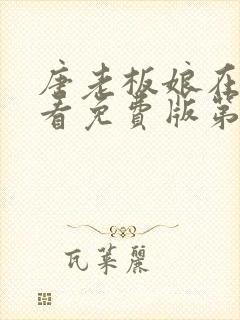 唐老板娘在
看免费版第
瓦莱丽